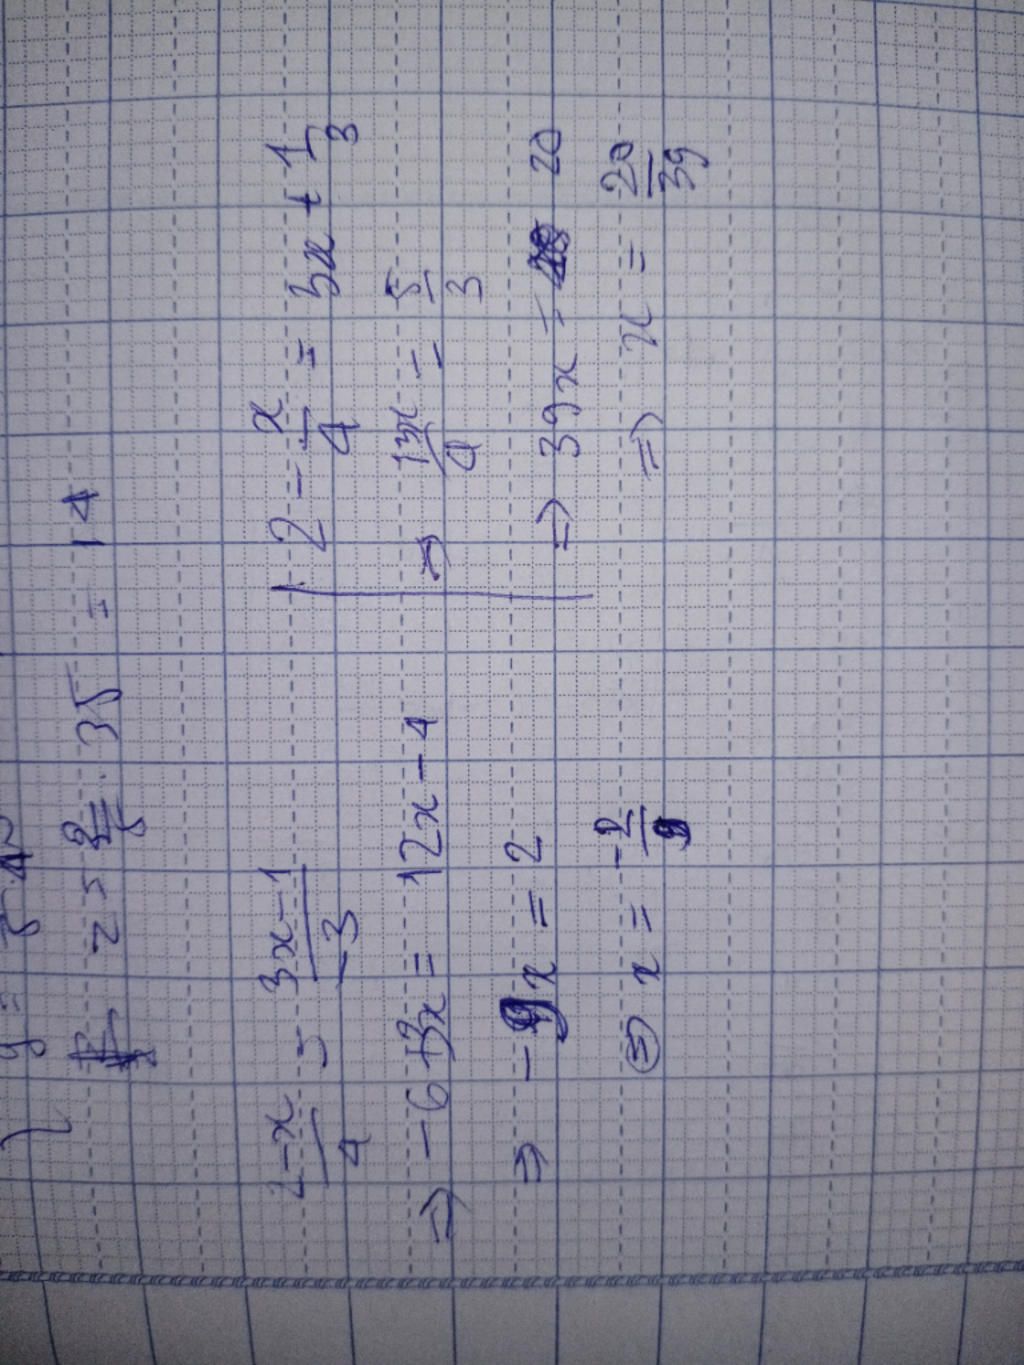 z = 2/5 . 35 = 14
2-x/4 = 3x-1/-3
=> -6 + 3x = 12x - 4
=> -9x = 2
=> x = -2/9
2 - x/4 = 3x + 1/3
=> 13x/4 = 5/3
=> 39x = 20
=> x = 20/39